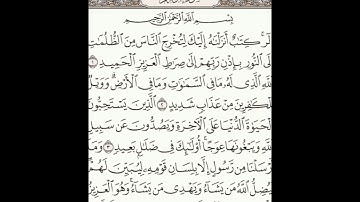 بِسْمِ اللَّهِ الرَّحْمَٰنِ الرَّحِيمِ
لَر ۚ كِتَٰبٌ أَنزَلْنَٰهُ إِلَيْكَ لِتُخْرِجَ النَّاسَ مِنَ الظُّلُمَٰتِ
لَى النُّورِ بِإِذْنِ رَبِّهِمْ إِلَىٰ صِرَٰطِ الْعَزِيزِ الْحَمِيدِ ١
للَّهِ الَّذِي لَهُ مَا فِي السَّمَٰوَٰتِ وَمَا فِي الْأَرْضِ ۗ وَوَيْلٌ
لِّلْكَٰفِرِينَ مِنْ عَذَابٍ شَدِيدٍ ٢ الَّذِينَ يَسْتَحِبُّونَ
لْحَيَوٰةَ الدُّنْيَا عَلَى الْآخِرَةِ وَيَصُدُّونَ عَن سَبِيلِ
للَّهِ وَيَبْغُونَهَا عِوَجًا ۚ أُولَٰئِكَ فِي ضَلَٰلٍ بَعِيدٍ ٣ وَمَا
رْسَلْنَا مِن رَّسُولٍ إِلَّا بِلِسَانِ قَوْمِهِ لِيُبَيِّنَ لَهُمْ
يُضِلُّ اللَّهُ مَن يَشَاءُ وَيَهْدِي مَن يَشَاءُ ۚ وَهُوَ الْعَزِيزُ